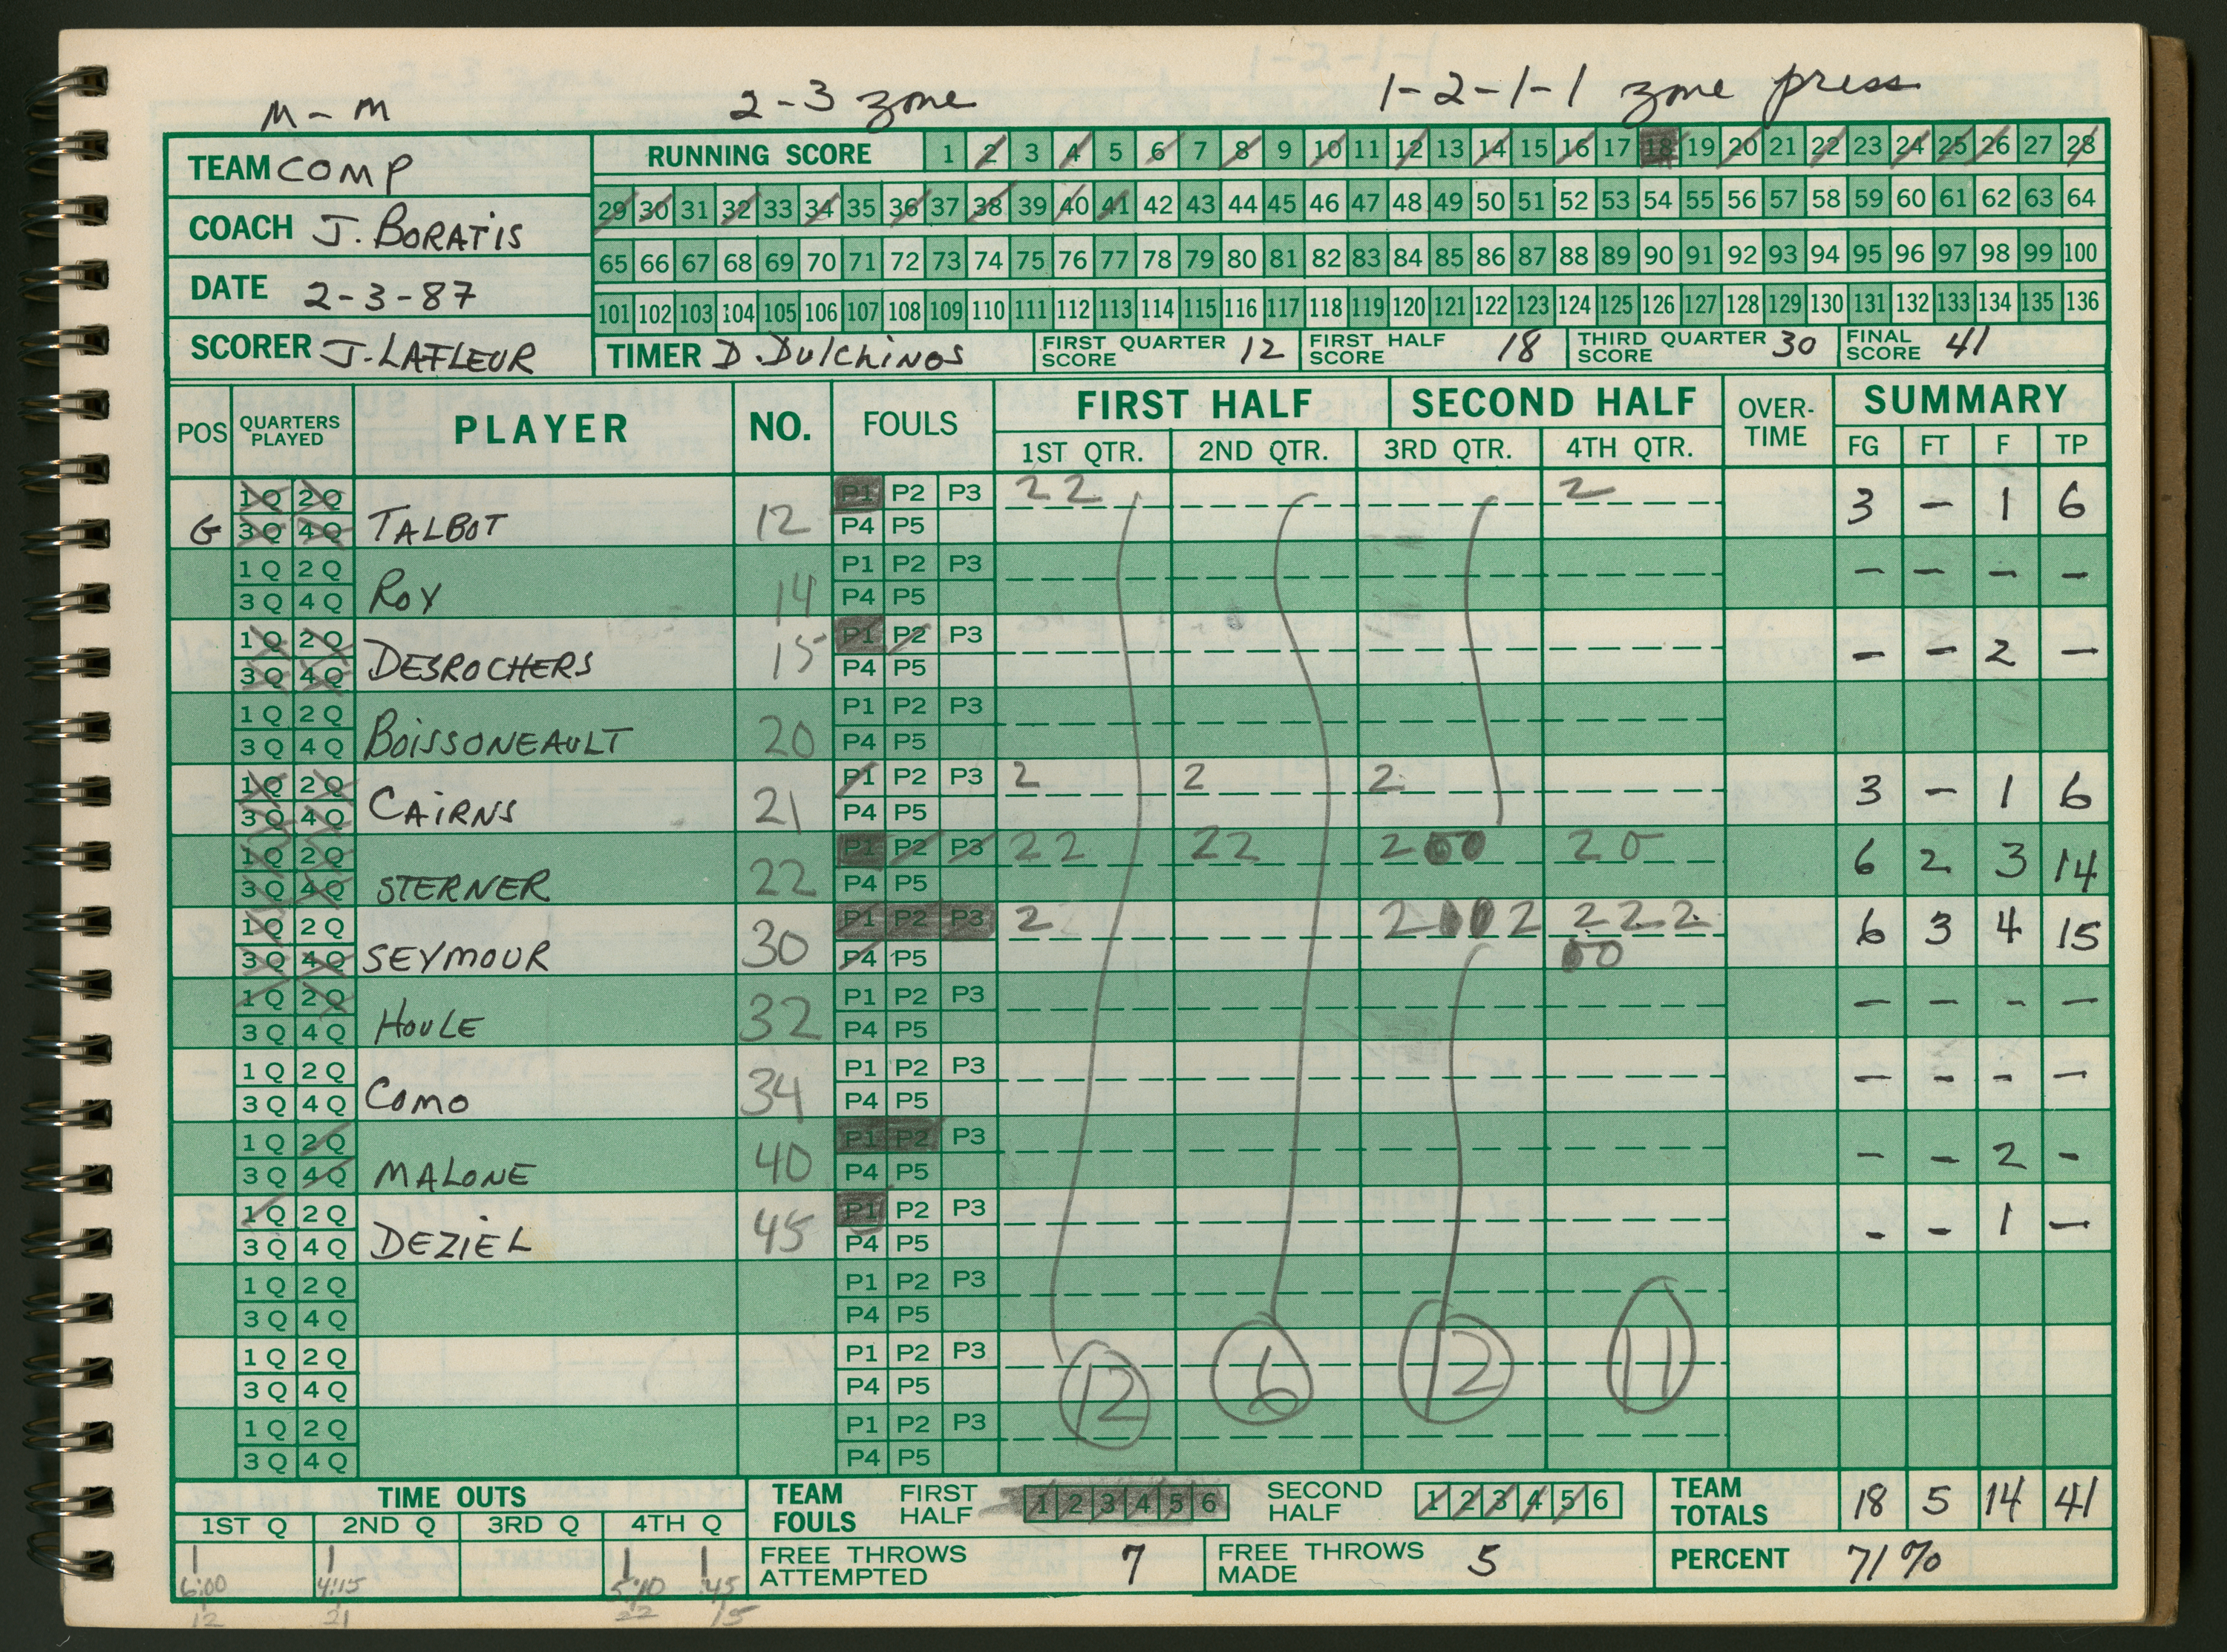 M-M 2-3 zone 1-2-1-1 zone press
TEAM COMP
COACH J. BORATIS
DATE 2-3-87
SCORER J. LAFLEUR
RUNNING SCORE 1 2 3 4 5 6 7 8 9 10 11 12 13 14 15 16 17 18 19 20 21 22 23 24 25 26 27 28
29 30 31 32 33 34 35 36 37 38 39 40 41 42 43 44 45 46 47 48 49 50 51 52 53 54 55 56 57 58 59 60 61 62 63 64
65 66 67 68 69 70 71 72 73 74 75 76 77 78 79 80 81 82 83 84 85 86 87 88 89 90 91 92 93 94 95 96 97 98 99 100
101 102 103 104 105 106 107 108 109 110 111 112 113 114 115 116 117 118 119 120 121 122 123 124 125 126 127 128 129 130 131 132 133 134 135 136
TIMER D. Dulchinos FIRST QUARTER SCORE 12 FIRST HALF SCORE 18 THIRD QUARTER SCORE 30 FINAL SCORE 41
POS QUARTERS PLAYED PLAYER NO. FOULS FIRST HALF SECOND HALF OVER-TIME SUMMARY
1ST QTR. 2ND QTR. 3RD QTR. 4TH QTR. FG FT F TP
1Q 2Q P1 P2 P3 2 2 2
G 3Q 4Q TALBOT 12 P4 P5 3 - 1 6
1Q 2Q P1 P2 P3
3Q 4Q ROY 14 P4 P5 - - - -
1Q 2Q P1 P2 P3
3Q 4Q DESROCHERS 15 P4 P5 - - 2 -
1Q 2Q P1 P2 P3
3Q 4Q BOISSONEAULT 20 P4 P5
1Q 2Q P1 P2 P3 2 2 2
3Q 4Q CAIRNS 21 P4 P5 3 - 1 6
1Q 2Q P1 P2 P3 2 2 2 2 2 0 0 2 0
3Q 4Q STERNER 22 P4 P5 6 2 3 14
1Q 2Q P1 P2 P3 2 2 0 0 2 2 2 2
3Q 4Q SEYMOUR 30 P4 P5 0 0 6 3 4 15
1Q 2Q P1 P2 P3
3Q 4Q HOULE 32 P4 P5 - - - -
1Q 2Q P1 P2 P3
3Q 4Q COMO 34 P4 P5 - - - -
1Q 2Q P1 P2 P3
3Q 4Q MALONE 40 P4 P5 - - 2 -
1Q 2Q P1 P2 P3
3Q 4Q DEZIEL 45 P4 P5 - - 1 -
1Q 2Q P1 P2 P3
3Q 4Q P4 P5
1Q 2Q P1 P2 P3
3Q 4Q P4 P5
1Q 2Q P1 P2 P3
3Q 4Q P4 P5
12 6 12 11
TIME OUTS
1ST Q 2ND Q 3RD Q 4TH Q
1 1 1 1
6:00 4:15 5:10 :45
12 21 22 15
TEAM FOULS FIRST HALF 1 2 3 4 5 6 SECOND HALF 1 2 3 4 5 6
TEAM TOTALS 18 5 14 41
FREE THROWS ATTEMPTED 7 FREE THROWS MADE 5 PERCENT 71%